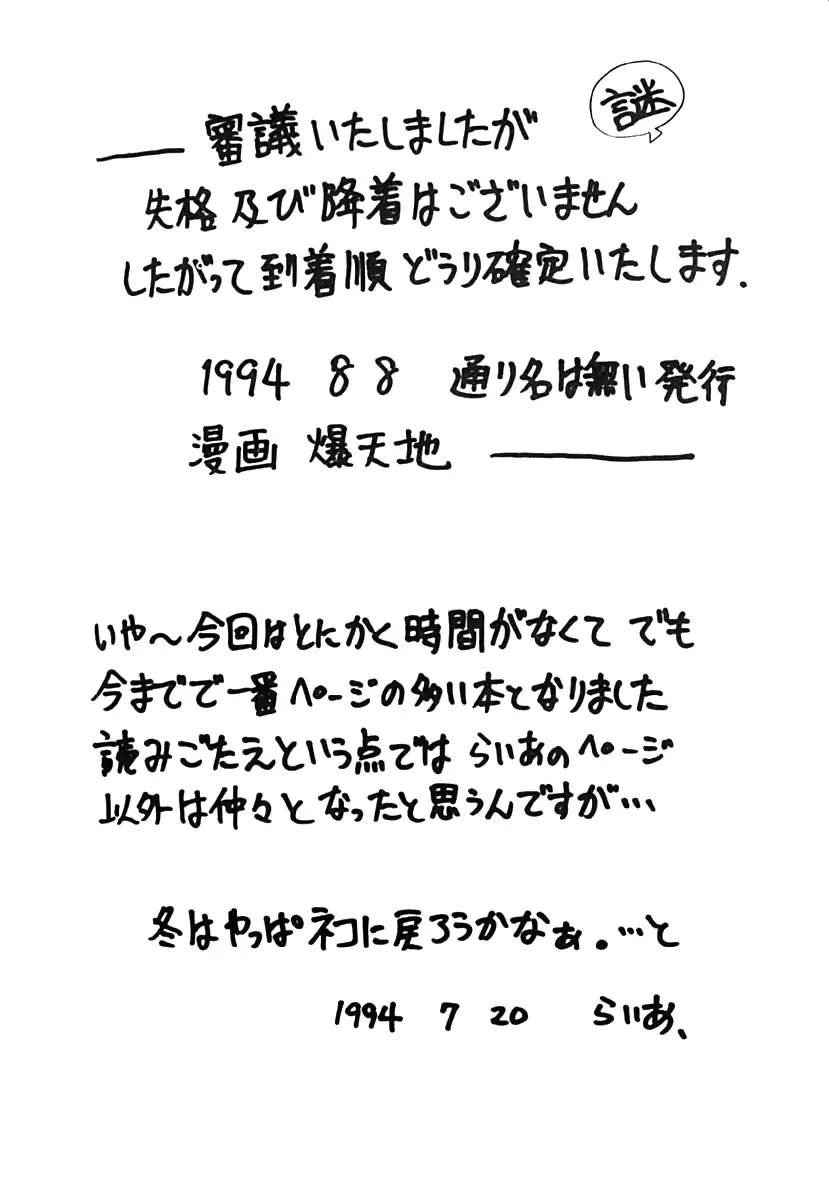 謎
―― 審議いたしましたが
失格及び降着はございません
したがって到着順どうり確定いたします.
1994 8 8 通り名は無い発行
漫画 爆天地 ――――
いや～今回はとにかく時間がなくて でも
今までで一番ページの多い本となりました
読みごたえという点では らいあのページ
以外は仲々となったと思うんですが…
冬はやっぱネコに戻ろうかなぁ。…と
1994 7 20 らいあ、